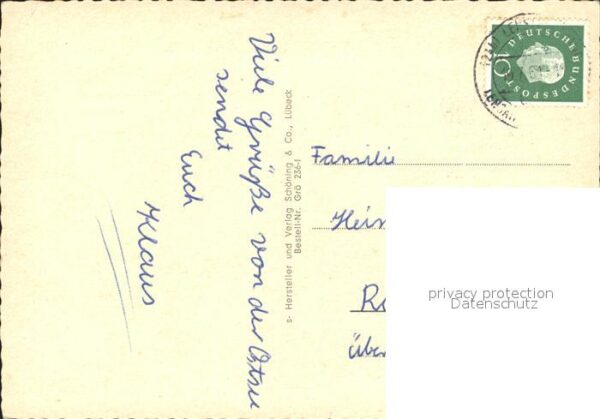 Viele Grüße von der Ostsee
sendet
Euch
Klaus
s- Hersteller und Verlag Schöning & Co., Lübeck
Bestell-Nr. Grö 236-1
DEUTSCHE BUNDESPOST
10
Familie
Hein
R
über
privacy protection
Datenschutz